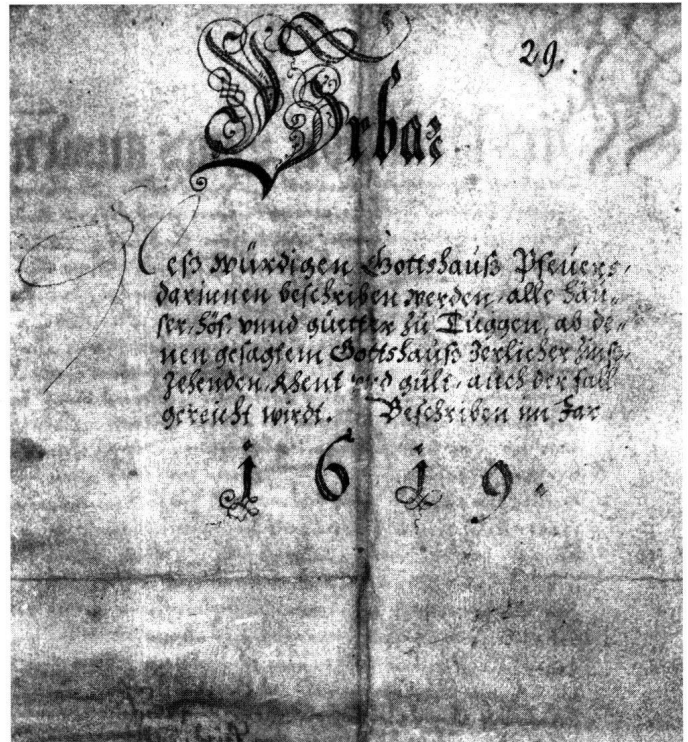 29.
Vrbar
Deß würdigen Gottshauß Pfeuers,
darinnen beschriben werden, alle häu-
ser, höf, vnnd güetter zu Tuggen, ab de-
nen gesagtem Gottshauß Jerlicher Zinß,
Zehenden, Rhent vnd gült, auch der fall
gereicht wirdt. Beschriben im Jar
1619.